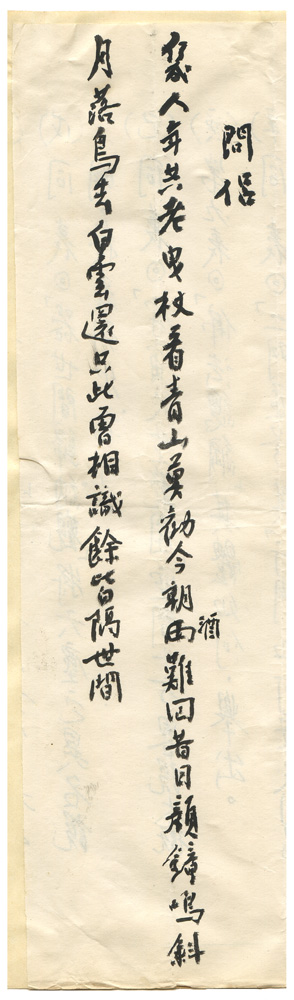 問侶
幾人年共老曳杖看青山莫勸今朝酒難回昔日顏鐘鳴斜
月落鳥去白雲還只此曾相識餘皆隔世間